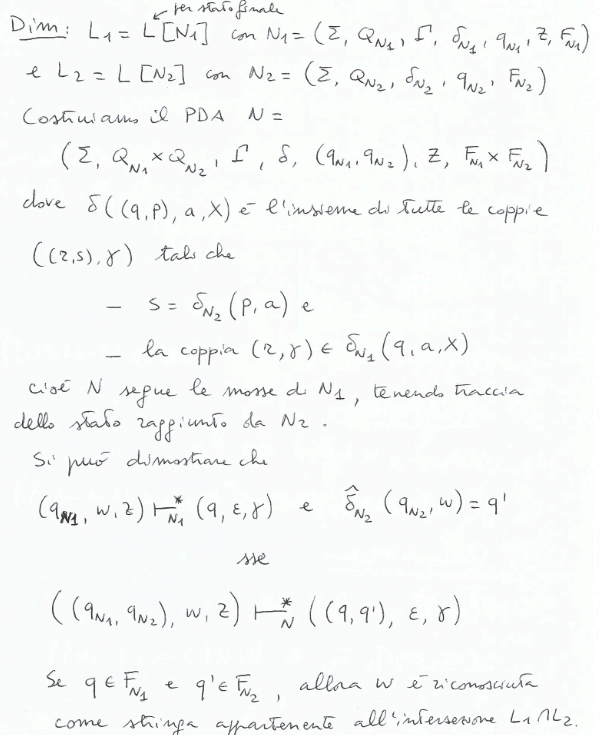 per stato finale
Dim: L₁ = L[N₁] con N₁ = (Σ, Q_N₁, Γ, δ_N₁, q_N₁, Z, F_N₁)
e L₂ = L[N₂] con N₂ = (Σ, Q_N₂, δ_N₂, q_N₂, F_N₂)
Costruiamo il PDA N =
(Σ, Q_N₁ × Q_N₂, Γ, δ, (q_N₁, q_N₂), Z, F_N₁ × F_N₂)
dove δ((q,p), a, X) è l'insieme di tutte le coppie
((r,s), γ) tali che
– s = δ_N₂(p, a) e
– la coppia (r, γ) ∈ δ_N₁(q, a, X)
cioè N segue le mosse di N₁, tenendo traccia
dello stato raggiunto da N₂.
Si può dimostrare che
(q_N₁, w, z) ⊢*_N₁ (q, ε, γ) e δ̂_N₂(q_N₂, w) = q'
sse
((q_N₁, q_N₂), w, z) ⊢*_N ((q, q'), ε, γ)
Se q ∈ F_N₁ e q' ∈ F_N₂, allora w è riconosciuta
come stringa appartenente all'intersezione L₁ ∩ L₂.